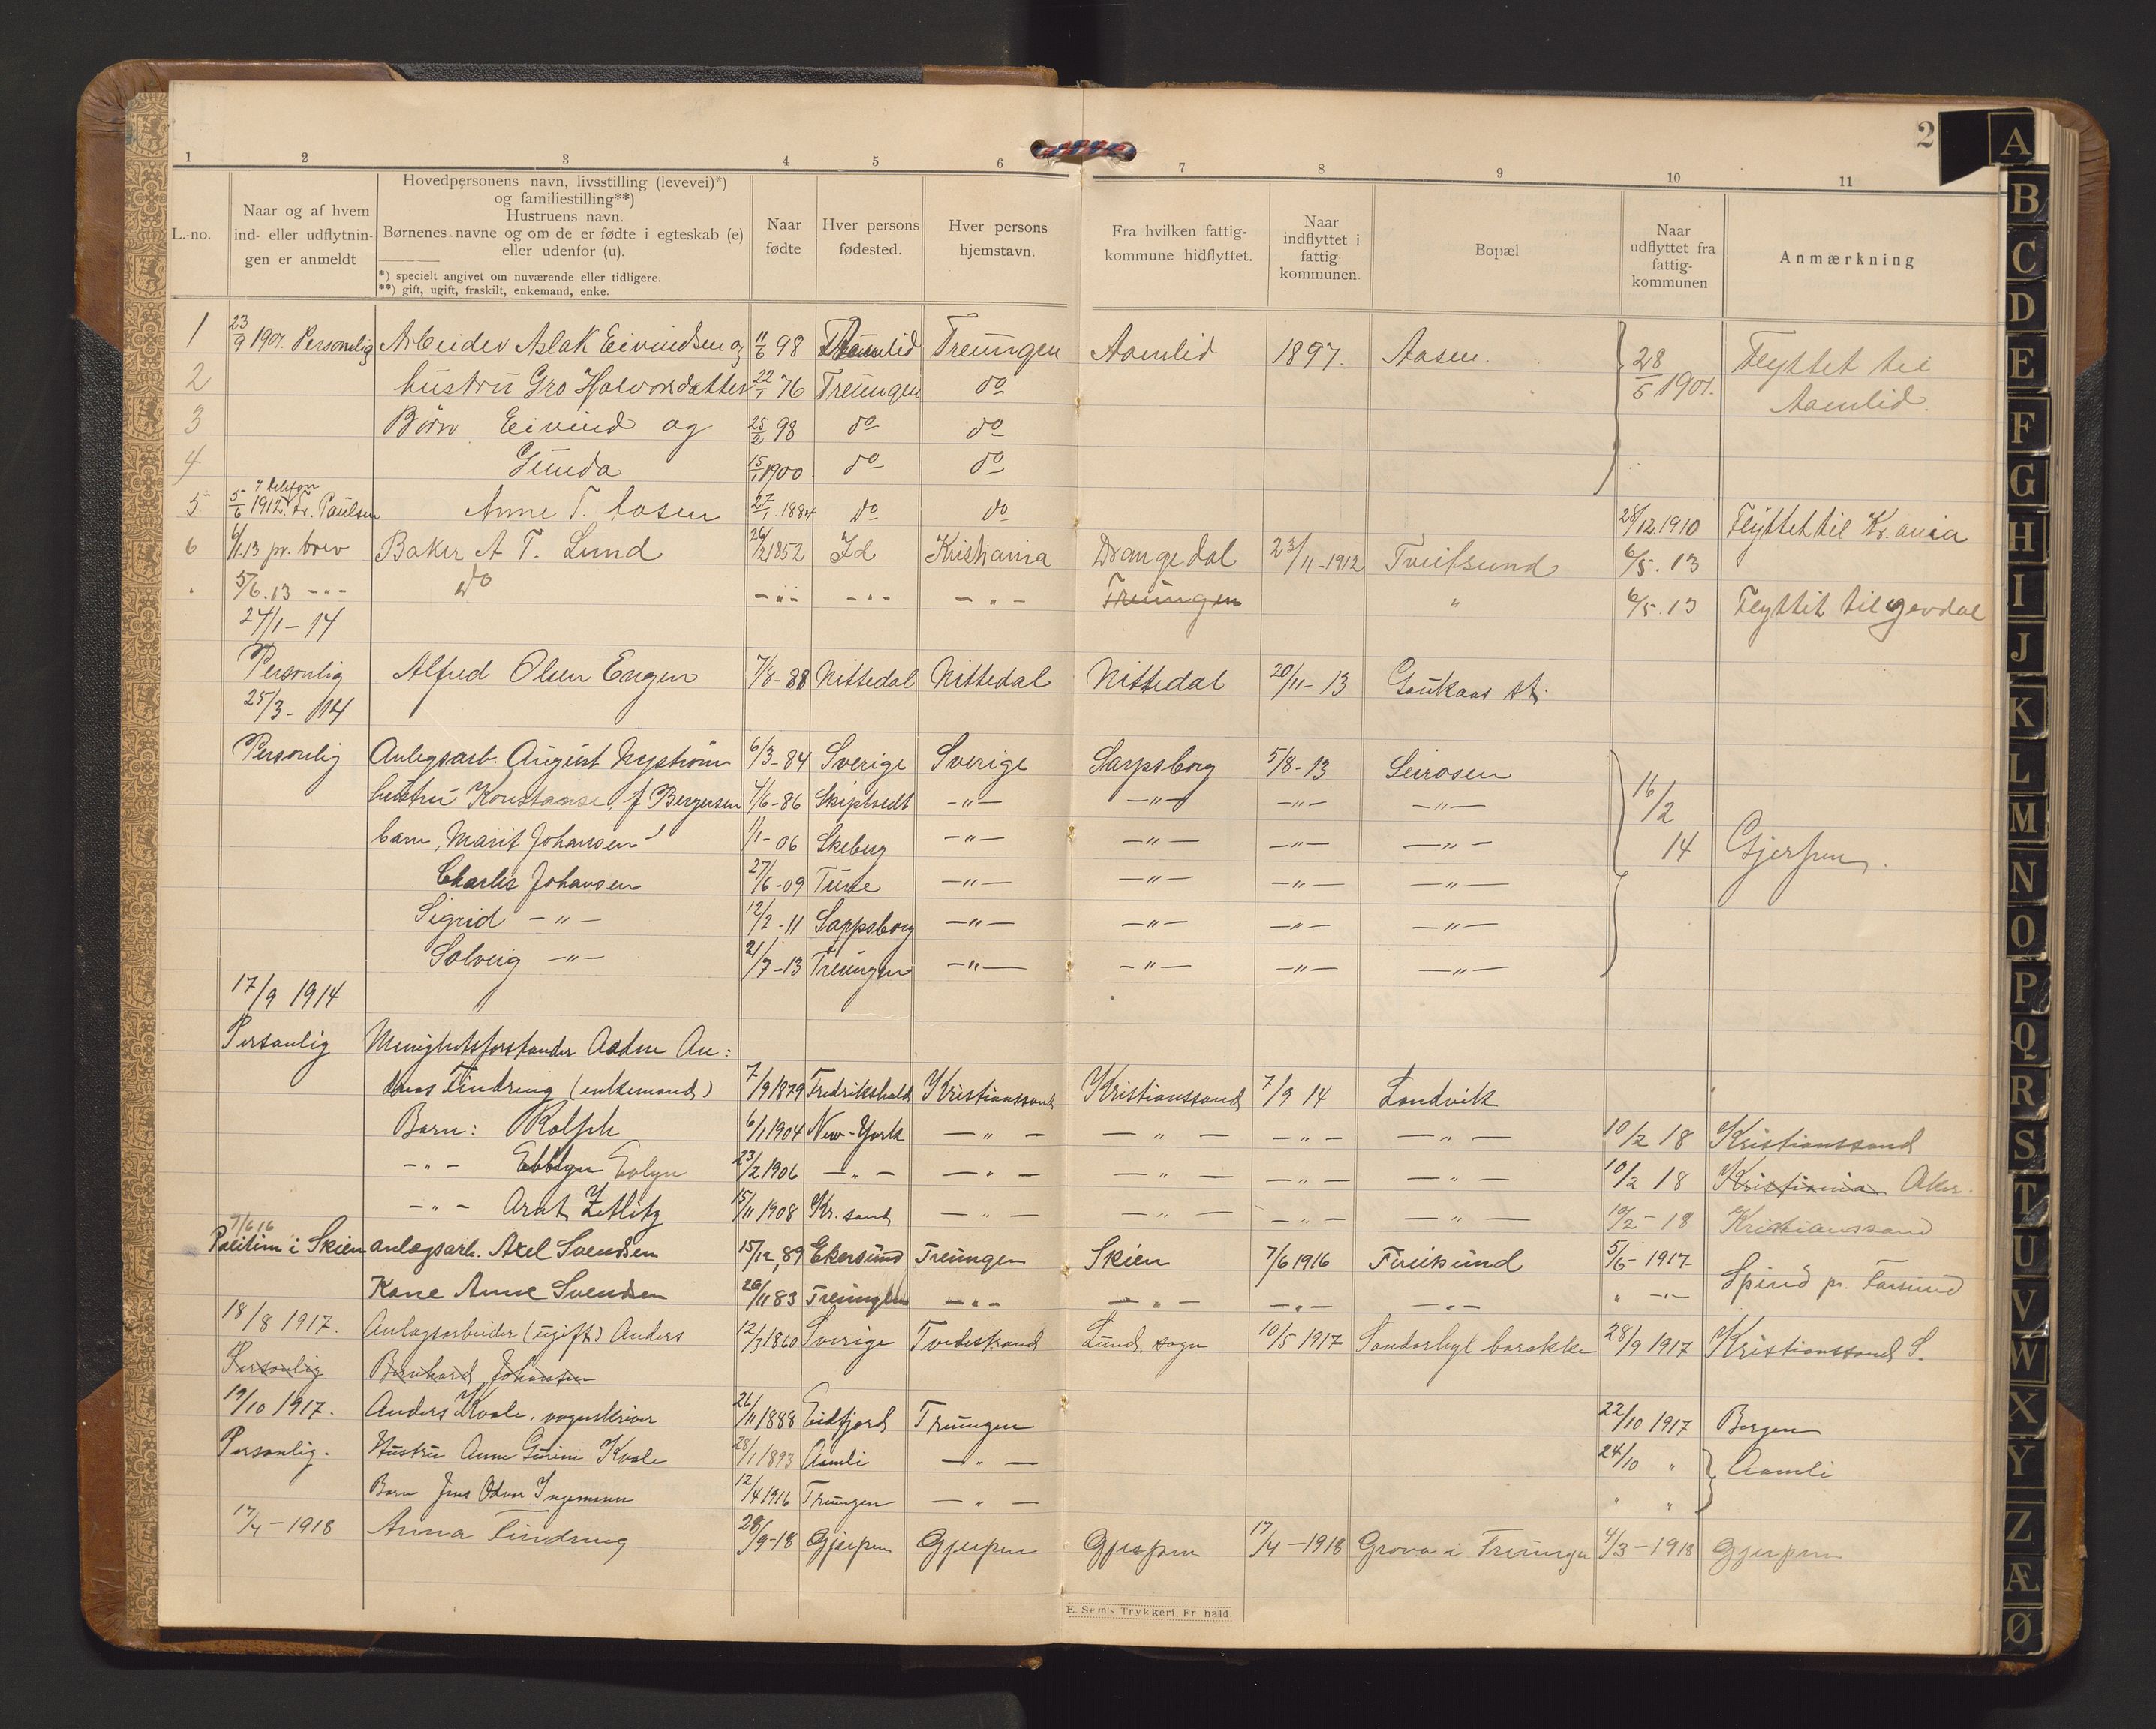 2
1 2 3 4 5 6 7 8 9 10 11
L.-no.
Naar og af hvem
ind- eller udflytnin-
gen er anmeldt
Hovedpersonens navn, livsstilling (levevei)*)
og familiestilling**)
Hustruens navn.
Børnenes navne og om de er fødte i egteskab (e)
eller udenfor (u).
*) specielt angivet om nuværende eller tidligere.
**) gift, ugift, fraskilt, enkemand, enke.
Naar
fødte
Hver persons
fødested.
Hver persons
hjemstavn.
Fra hvilken fattig-
kommune hidflyttet.
Naar
indflyttet i
fattig-
kommunen.
Bopæl
Naar
udflyttet fra
fattig-
kommunen
Anmærkning
1 23/9 1901. Personlig Arbeider Aslak Eivindsen og 11/6 98 Aamlid Treungen Aamlid 1897. Aasen. 28/5 1901. Flyttet til
2 hustru Gro Halvorsdatter 22/1 76 Treungen do Aamlid.
3 Børn Eivind og 25/2 98 do do
4 Gunda 15/1 1900. do do
5 5/6 1912. telefon Fr. Paulsen Anne T. Aasen 27/1 1884 do do 28/12 1910 Flyttet til Kr.ania
6 6/1 13 pr. brev Baker A T. Lund 26/2 1852 Id Kristiania Drangedal 23/11-1912 Tveitsund 6/5. 13
5/6. 13 -"- do -"- -"- -"- Treungen " 6/5. 13 Flyttet til Gjevdal
24/1-14
Personlig Alfred Olsen Engen 7/8-88 Nittedal Nittedal Nittedal 20/11-13 Gaukaas st.
25/3-14
Personlig Anlegsarb. August Nystrøm 6/3-84 Sverige Sverige Sarpsborg 5/8-13 Leirosen
hustru Konstanse, f Bergersen 4/6-86 Skiptvedt -"- -"- -"- -"- 16/2
barn, Marit Johansen 1/1-06 Skeberg -"- -"- -"- -"- 14 Gjerpen.
Charles Johansen 27/6-09 Tune -"- -"- -"- -"-
Sigrid -"- 12/2-11 Sarpsborg -"- -"- -"- -"-
Solveig -"- 21/7-13 Treungen -"- -"- -"- -"-
17/9 1914
Personlig Menighetsforstander Aadne An:
dreas Tindring (enkemand) 7/9 1879 Fredrikshald Kristianssand Kristianssand 7/9 14 Landvik
Barn: Rolph 6/1 1904 New-York -"- -"- -"- -"- 10/2 18 Kristianssand
-"- Evlyn 23/2 1906 -"- -"- -"- -"- -"- 10/2 18 Kristiania Aker.
-"- Arnt Zetlitz 15/11 1908 Kr.sand -"- -"- -"- -"- 10/2-18 Kristianssand
7/6 16
Politim i Skien anlægsarb. Axel Svendsen 15/12, 89 Ekersund Treungen Skien 7/6 1916 Tveitsund 5/6-1917
Kone Anne Svendsen 26/11 83 Treungen -"- -"- -"- -"- " -"- Spind pr. Farsund
18/8 1917. Anlægsarbeider (ugift) Anders 12/3 1860 Sverige Tvedestrand Lund sogn 10/5 1917 Sandorhyl barakke 28/9 1917 Kristianssand S.
Personlig Bernhard Johansen
19/10 1917. Anders Kvale, vognskriver 26/11 1888 Eidfjord Treungen 22/10 1917 Bergen
Personlig. Hustru Anne Gurine Kvale 28/1 1893 Aamli -"- 24/10 " Aamli
Barn Jens Odvar Ingemann 12/4 1916 Treungen -"- " "
17/4-1918 Anna Tindring 28/9-18 Gjerpen Gjerpen Gjerpen 17/4-1918 Grova i Treungen 4/3-1918 Gjerpen
E. Sem's Trykkeri, Fr.hald.
A
B
C
D
E
F
G
H
I
J
K
L
M
N
O
P
Q
R
S
T
U
V
W
X
Y
Z
Æ
Ø